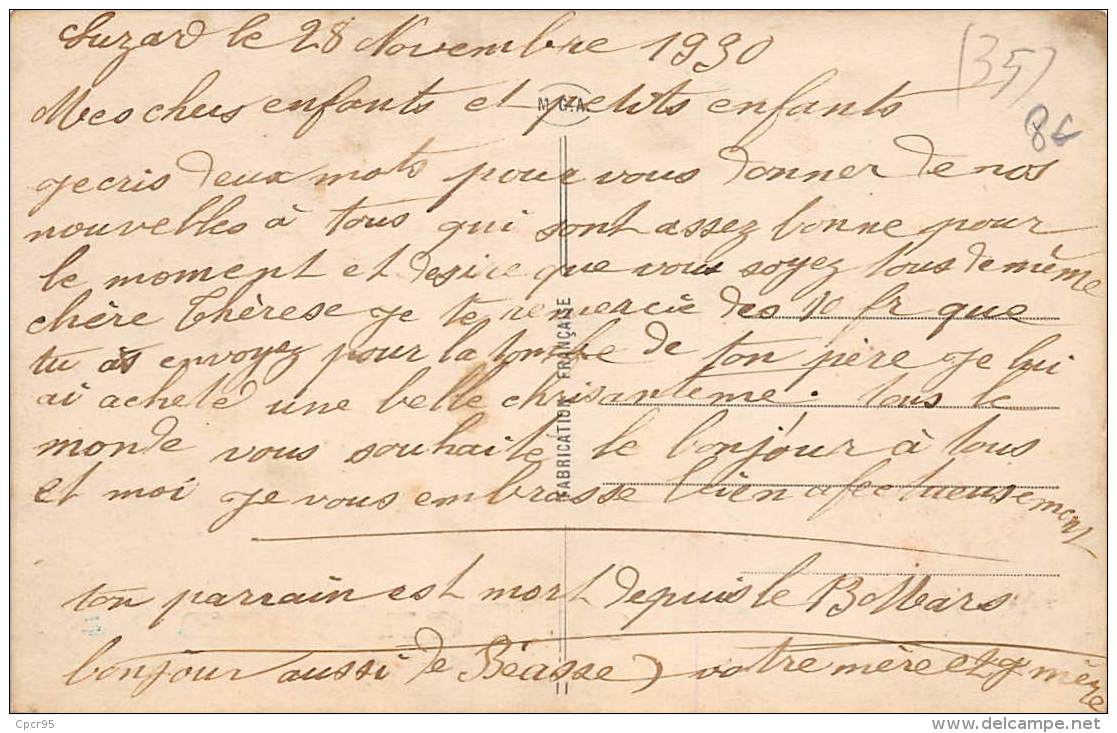 Suzard le 28 Novembre 1930
(35)
8€
M.G.A.
Mes chers enfants et petits enfants
jecris deux mots pour vous donner de nos
nouvelles à tous qui sont assez bonne pour
le moment et desire que vous soyez tous de même
chère Thérèse je te remercie des 10 fr que
tu as envoyez pour la tombe de ton père je lui
ai acheté une belle chrisantème. tous le
monde vous souhaite le bonjour à tous
et moi je vous embrasse bien afectueusement
FABRICATION FRANÇAISE
ton parrain est mort depuis le 13 Mars
bonjour aussi de Béasse) votre mère et g mère
Cpcr95
www.delcampe.net